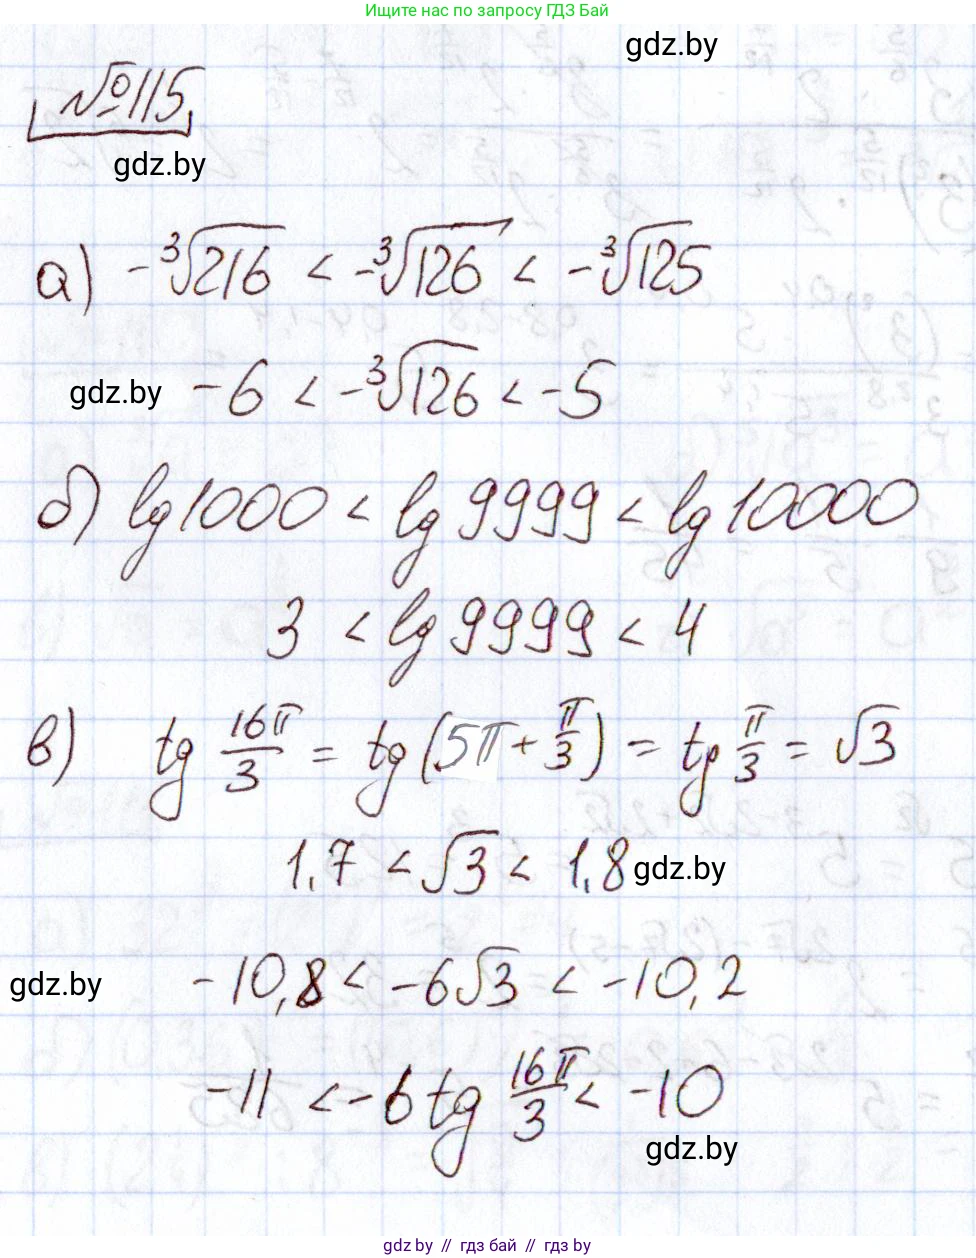 Ищите нас по запросу ГДЗ Бай
gdz.by
№115
gdz.by
а) -∛216 < -∛126 < -∛125
gdz.by -6 < -∛126 < -5
б) lg 1000 < lg 9999 < lg 10000
3 < lg 9999 < 4
в) tg 16π/3 = tg (5π + π/3) = tg π/3 = √3
1,7 < √3 < 1,8 gdz.by
gdz.by -10,8 < -6√3 < -10,2
-11 < -6 tg 16π/3 < -10
gdz.by
gdz.by // гдз бай // гдз by